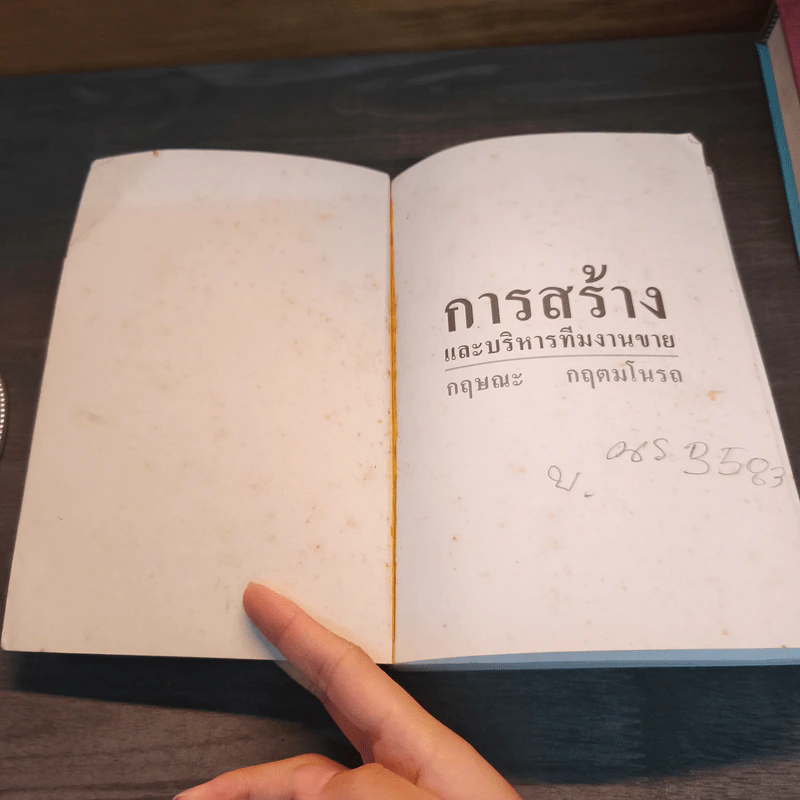 การสร้าง
และบริหารทีมงานขาย
กฤษณะ กฤตมโนรถ
3583